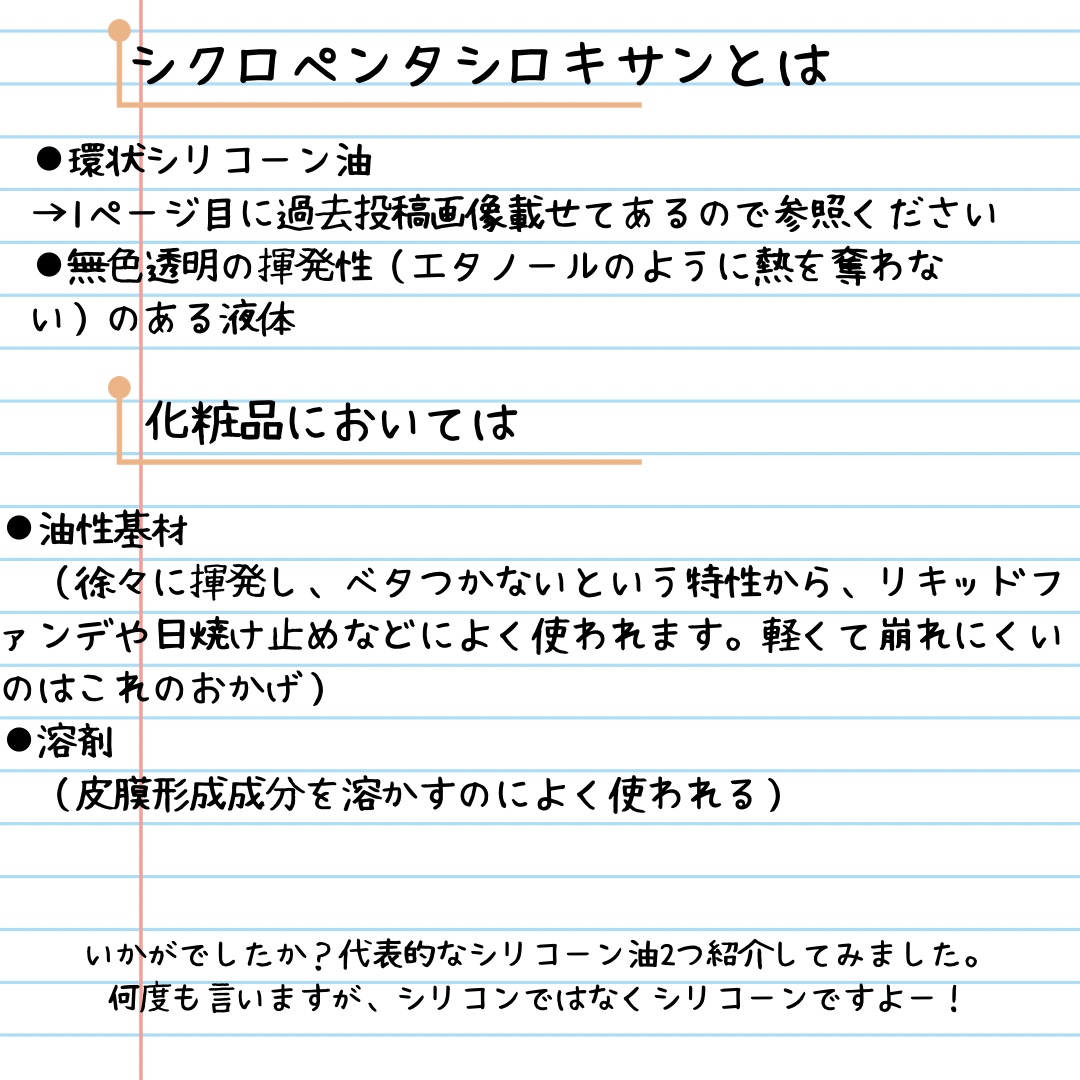 シクロペンタシロキサンとは
●環状シリコーン油
→1ページ目に過去投稿画像載せてあるので参照ください
●無色透明の揮発性（エタノールのように熱を奪わな
い）のある液体
化粧品においては
●油性基材
（徐々に揮発し、ベタつかないという特性から、リキッドフ
ァンデや日焼け止めなどによく使われます。軽くて崩れにくい
のはこれのおかげ）
●溶剤
（皮膜形成成分を溶かすのによく使われる）
いかがでしたか？代表的なシリコーン油2つ紹介してみました。
何度も言いますが、シリコンではなくシリコーンですよー！